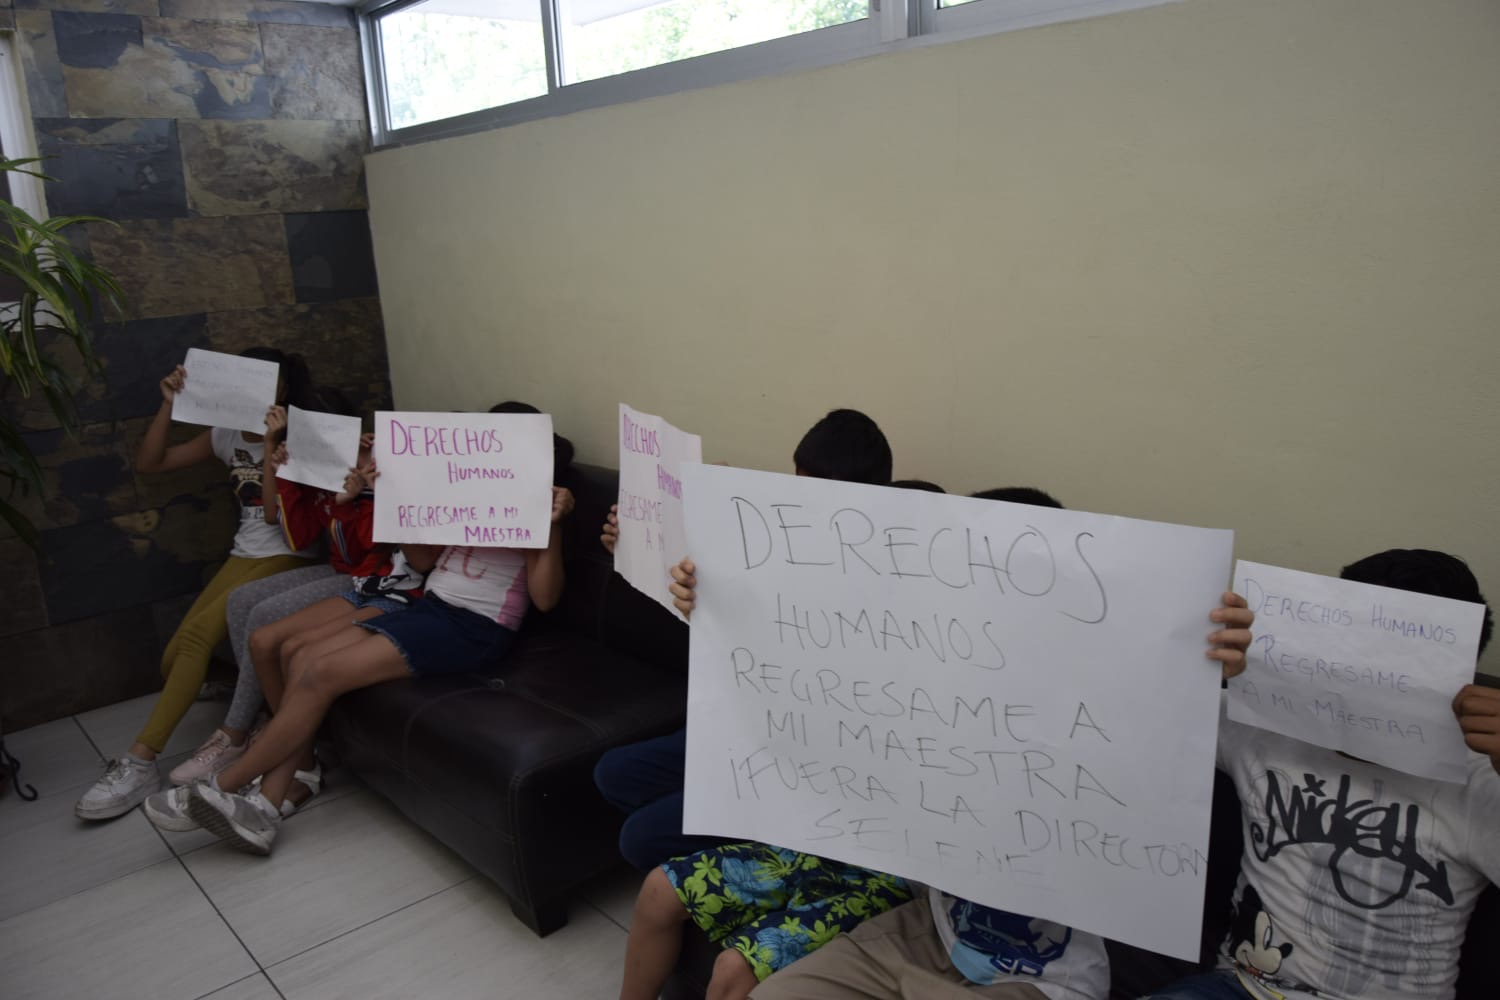 DERECHOS HUMANOS
REGRESAME
MI MAESTRA
DERECHOS
HUMANOS
REGRESAME A MI
MAESTRA
DERECHOS
HUMANOS
REGRESAME
A M
DERECHOS
HUMANOS
REGRESAME A
MI MAESTRA
¡FUERA LA DIRECTORA
SELENE
DERECHOS HUMANOS
REGRESAME
A MI MAESTRA
Mickey